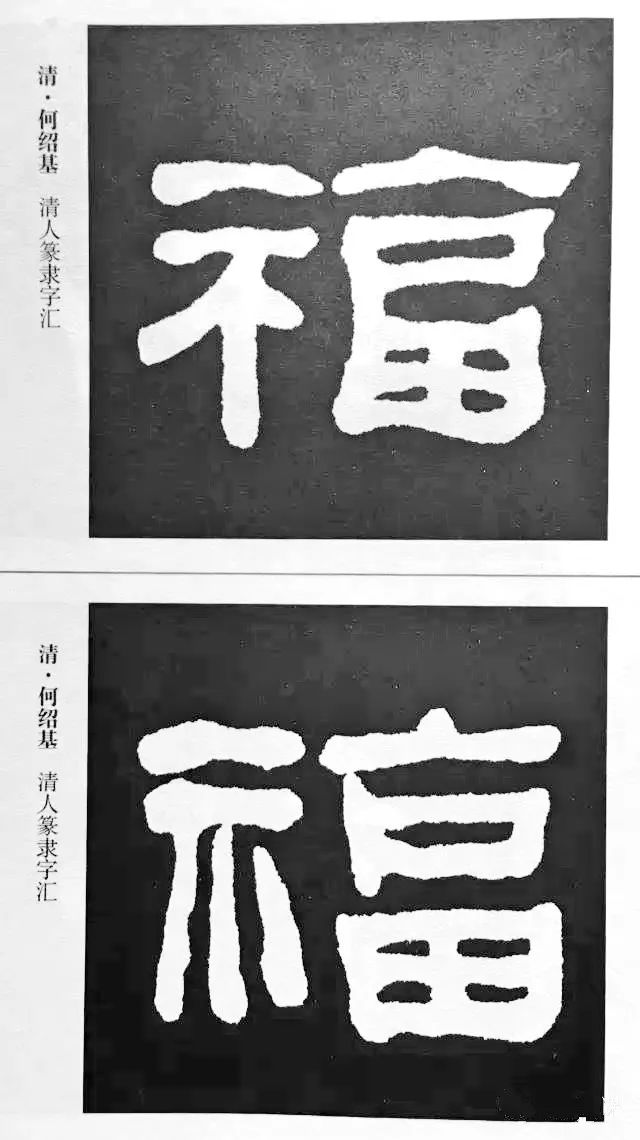 清·何绍基 清人篆隶字汇
福
清·何绍基 清人篆隶字汇
福